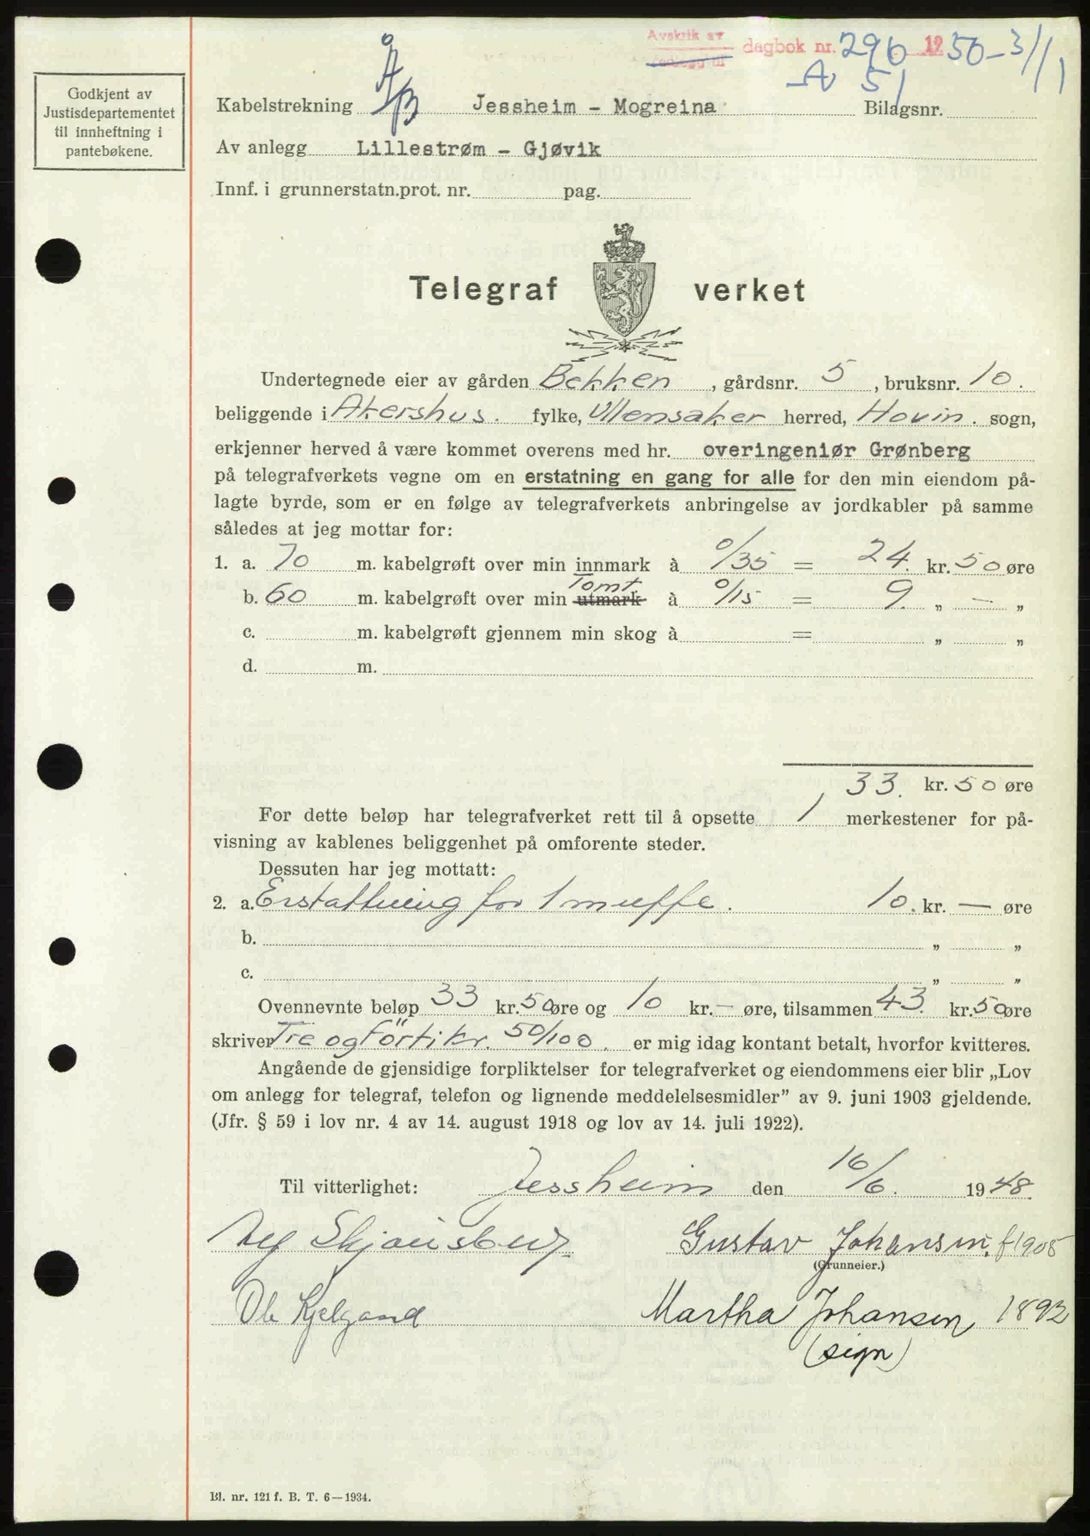 Avskrift av dagbok nr. 296 1950 - 3/11
A 51
Godkjent av
Justisdepartementet
til innheftning i
pantebøkene.
Kabelstrekning Jessheim - Mogreina Bilagsnr.
Av anlegg Lillestrøm - Gjøvik
Innf. i grunnerstatn.prot. nr. pag.
Telegrafverket
Undertegnede eier av gården Bekken, gårdsnr. 5, bruksnr. 10.
beliggende i Akershus. fylke, Ullensaker herred, Hovin. sogn,
erkjenner herved å være kommet overens med hr. overingeniør Grønberg
på telegrafverkets vegne om en erstatning en gang for alle for den min eiendom på-
lagte byrde, som er en følge av telegrafverkets anbringelse av jordkabler på samme
således at jeg mottar for:
1. a. 70 m. kabelgrøft over min innmark à 0/35 = 24. kr. 50 øre
Tomt
b. 60 m. kabelgrøft over min utmark à 0/15 = 9. „ — „
c. m. kabelgrøft gjennem min skog à = „ „
d. m.
33. kr. 50 øre
For dette beløp har telegrafverket rett til å opsette 1 merkestener for på-
visning av kablenes beliggenhet på omforente steder.
Dessuten har jeg mottatt:
2. a. Erstattning for 1 muffe. 10. kr. — øre
b. „ „
c. „ „
Ovennevnte beløp 33 kr. 50 øre og 10 kr. — øre, tilsammen 43. kr. 50 øre
skriver Tre og førti kr. 50/100. er mig idag kontant betalt, hvorfor kvitteres.
Angående de gjensidige forpliktelser for telegrafverket og eiendommens eier blir „Lov
om anlegg for telegraf, telefon og lignende meddelelsesmidler” av 9. juni 1903 gjeldende.
(Jfr. § 59 i lov nr. 4 av 14. august 1918 og lov av 14. juli 1922).
Til vitterlighet: Jessheim den 16/6. 1948.
Gustav Johansen. f 1905
(Grunneier.)
Ole Kjelgaard Martha Johansen 1892
(sign)
Bl. nr. 121 f. B. T. 6—1934.